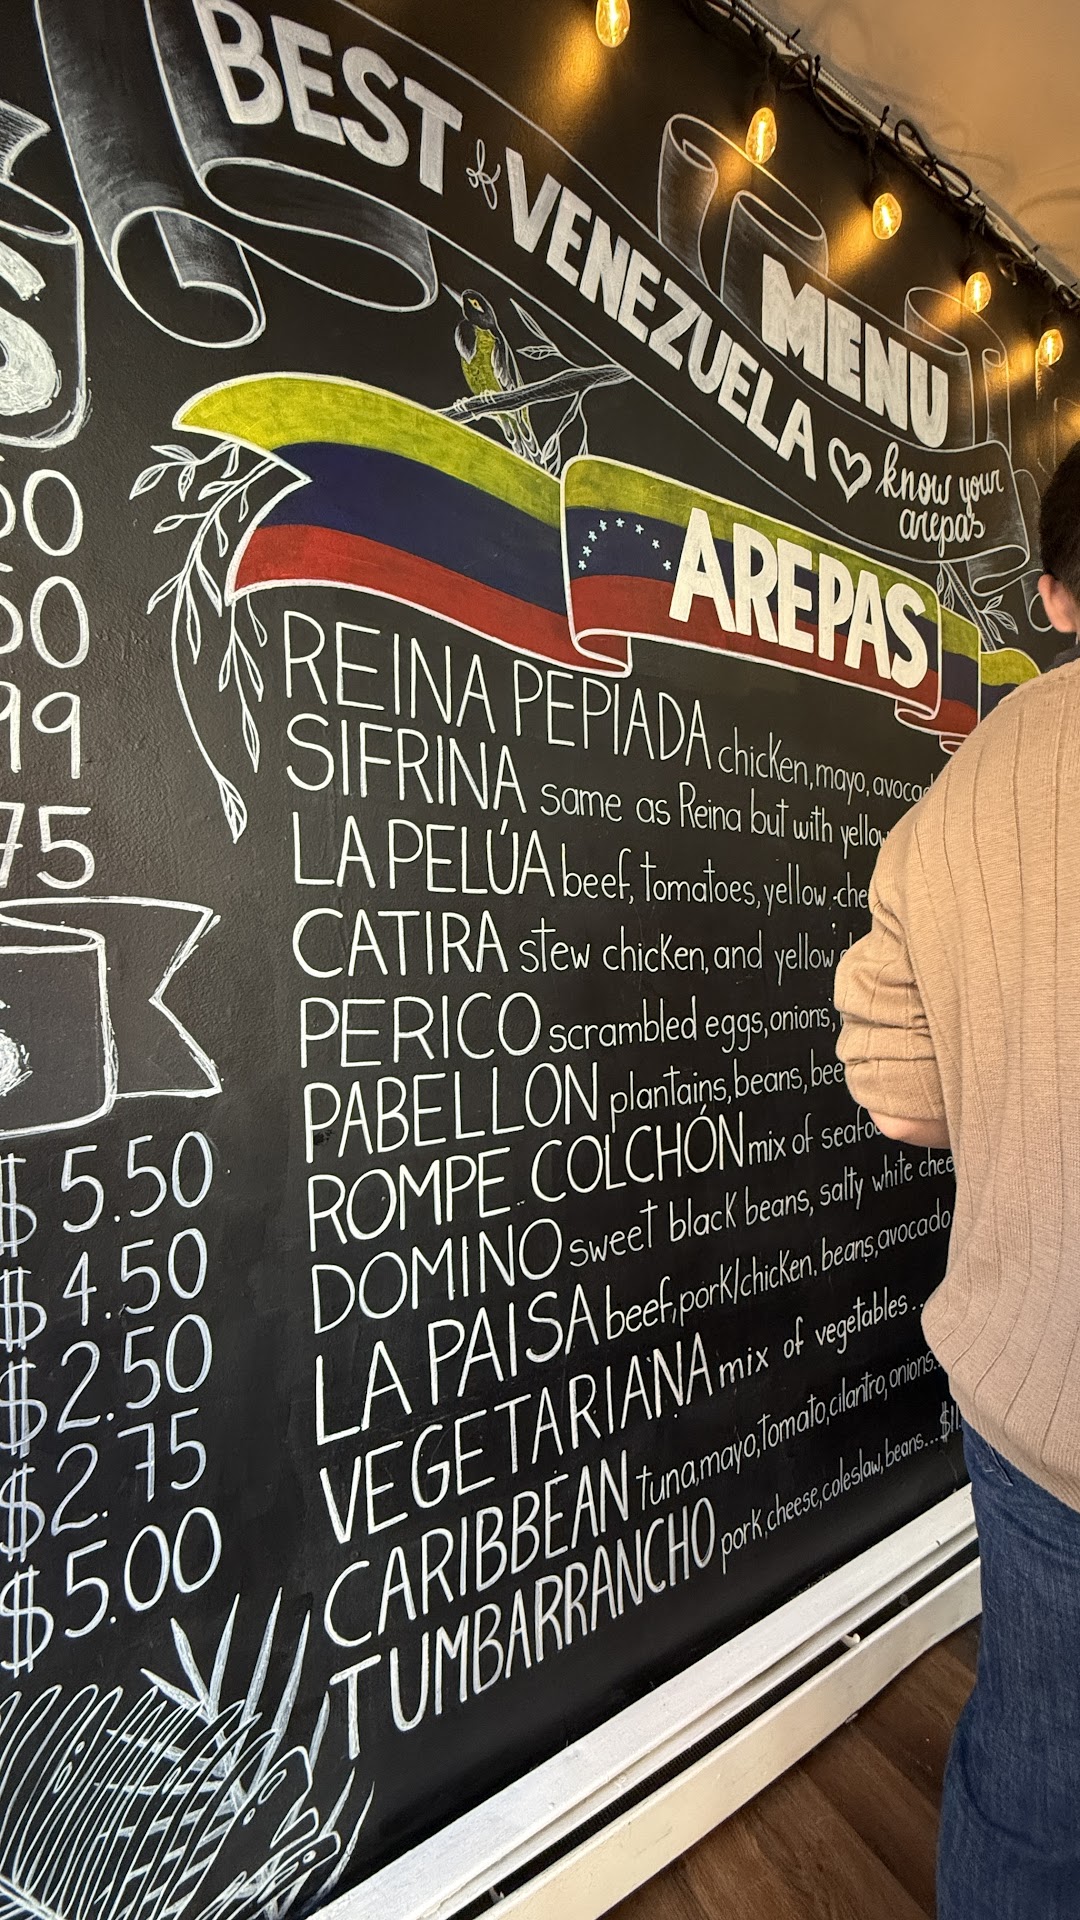 BEST of VENEZUELA
MENU
know your
arepas
AREPAS
REINA PEPIADA chicken, mayo,
SIFRINA same as Reina but with
LA PELÚA beef, tomatoes, yellow
CATIRA stew chicken, and yellow
PERICO scrambled eggs, onions,
PABELLON plantains, beans,
ROMPE COLCHÓN mix of
DOMINO sweet black beans, salty white
LA PAISA beef, pork/chicken, beans, avocado
VEGETARIANA mix of vegetables...
CARIBBEAN tuna, mayo, tomato, cilantro, onions...
TUMBARRANCHO pork, cheese, coleslaw, beans...
$5.50
$4.50
$2.50
$2.75
$5.00